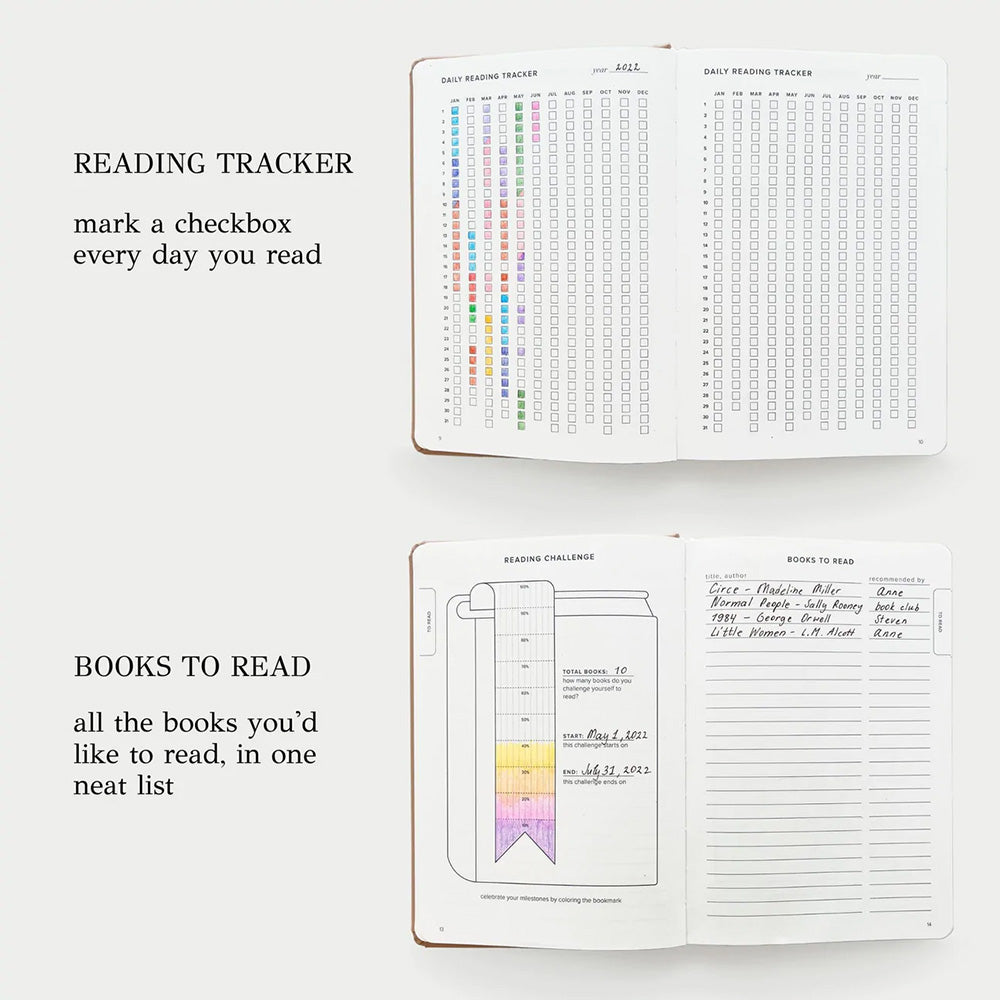 READING TRACKER
mark a checkbox
every day you read
DAILY READING TRACKER year 2022
JAN FEB MAR APR MAY JUN JUL AUG SEP OCT NOV DEC
1
2
3
4
5
6
7
8
9
10
11
12
13
14
15
16
17
18
19
20
21
22
23
24
25
26
27
28
29
30
31
9
DAILY READING TRACKER year
JAN FEB MAR APR MAY JUN JUL AUG SEP OCT NOV DEC
1
2
3
4
5
6
7
8
9
10
11
12
13
14
15
16
17
18
19
20
21
22
23
24
25
26
27
28
29
30
31
10
BOOKS TO READ
all the books you'd
like to read, in one
neat list
READING CHALLENGE
TO READ
100%
90%
80%
70%
60%
50%
40%
30%
20%
10%
TOTAL BOOKS: 10
how many books do you
challenge yourself to
read?
START: May 1, 2022
this challenge starts on
END: July 31, 2022
this challenge ends on
celebrate your milestones by coloring the bookmark
13
BOOKS TO READ
title, author recommended by
Circe - Madeline Miller Anne
Normal People - Sally Rooney book club
1984 - George Orwell Steven
Little Women - L.M. Alcott Anne
TO READ
14